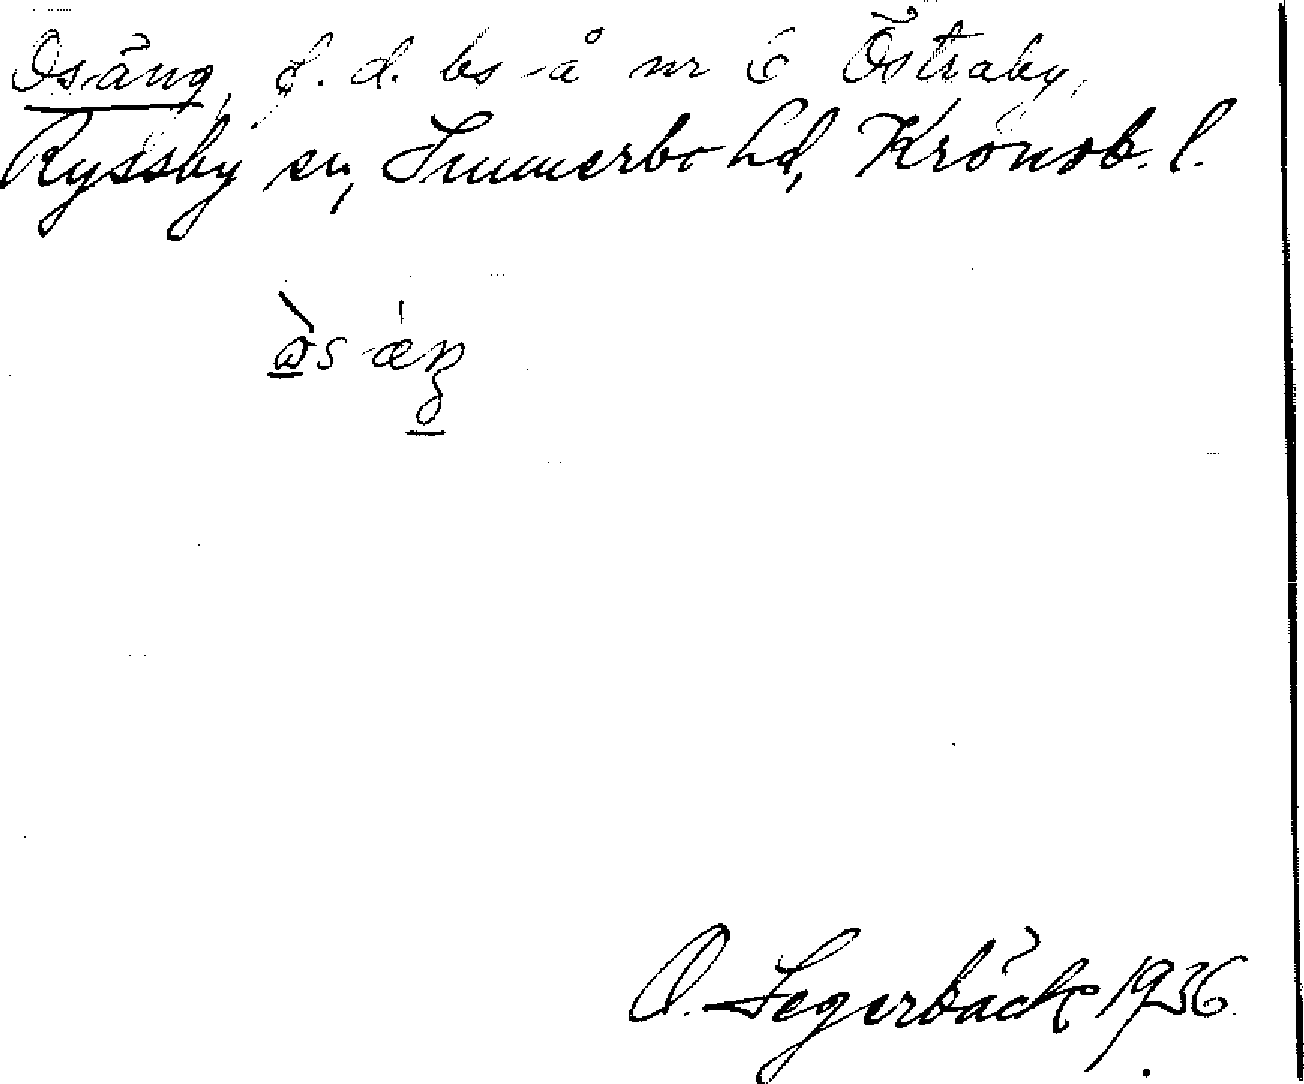 Osäng, f. d. bs å nr 6 Östraby,
Ryssby sn, Sunnerbo hd, Kronob. l.
O. Segerbäck 1936.